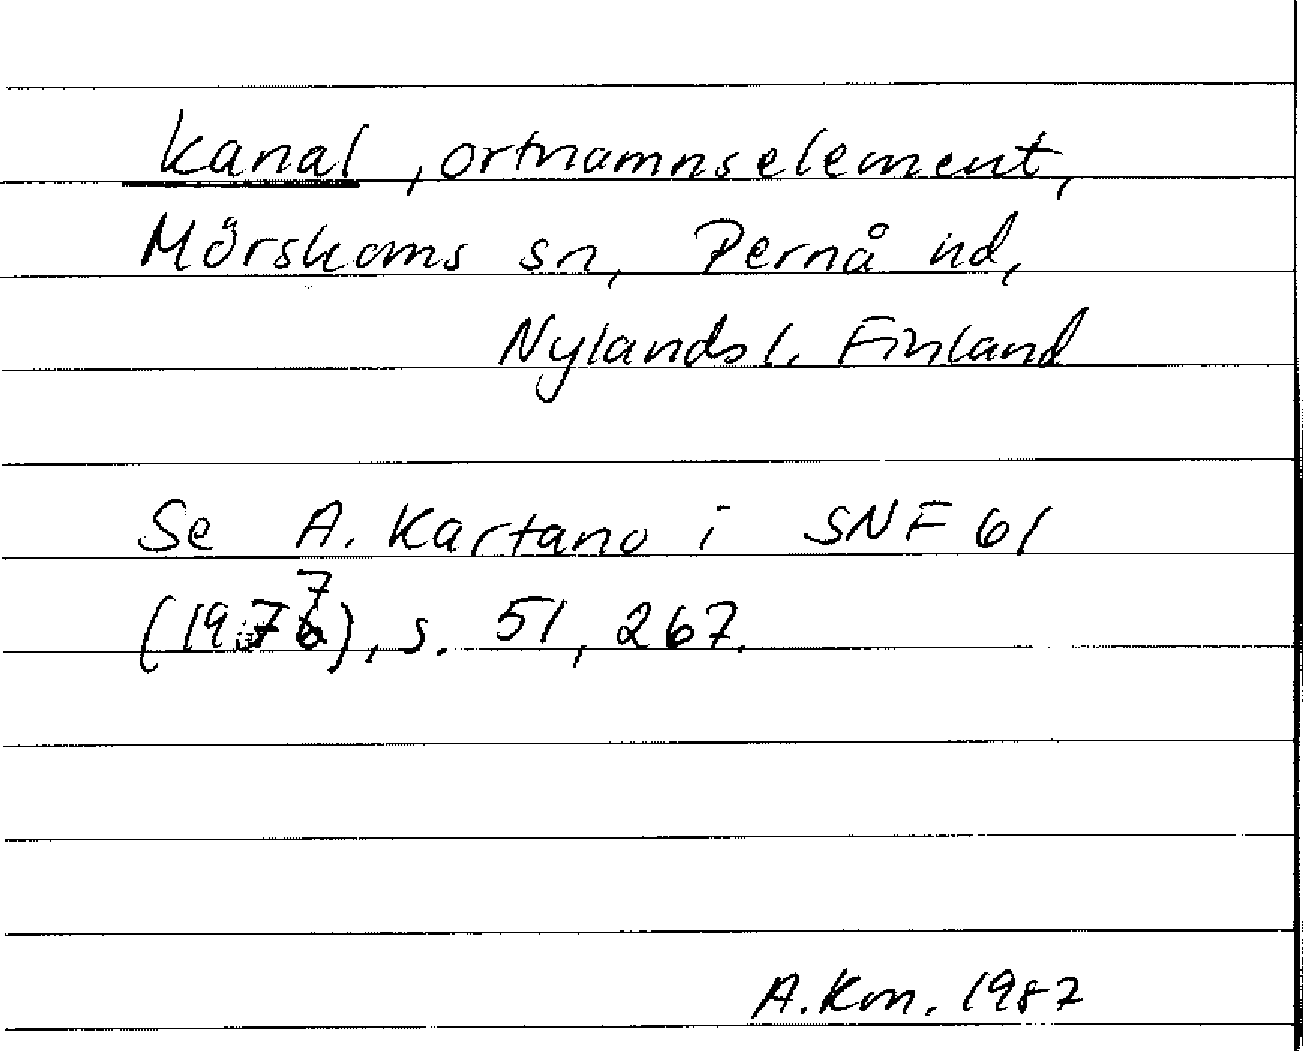 kanal, ortnamnselement,
Mörskoms sn, Pernå hd,
Nylands l. Finland
Se A. Kartano i SNF 61
(1977), s. 51, 267.
A. Km. 1982